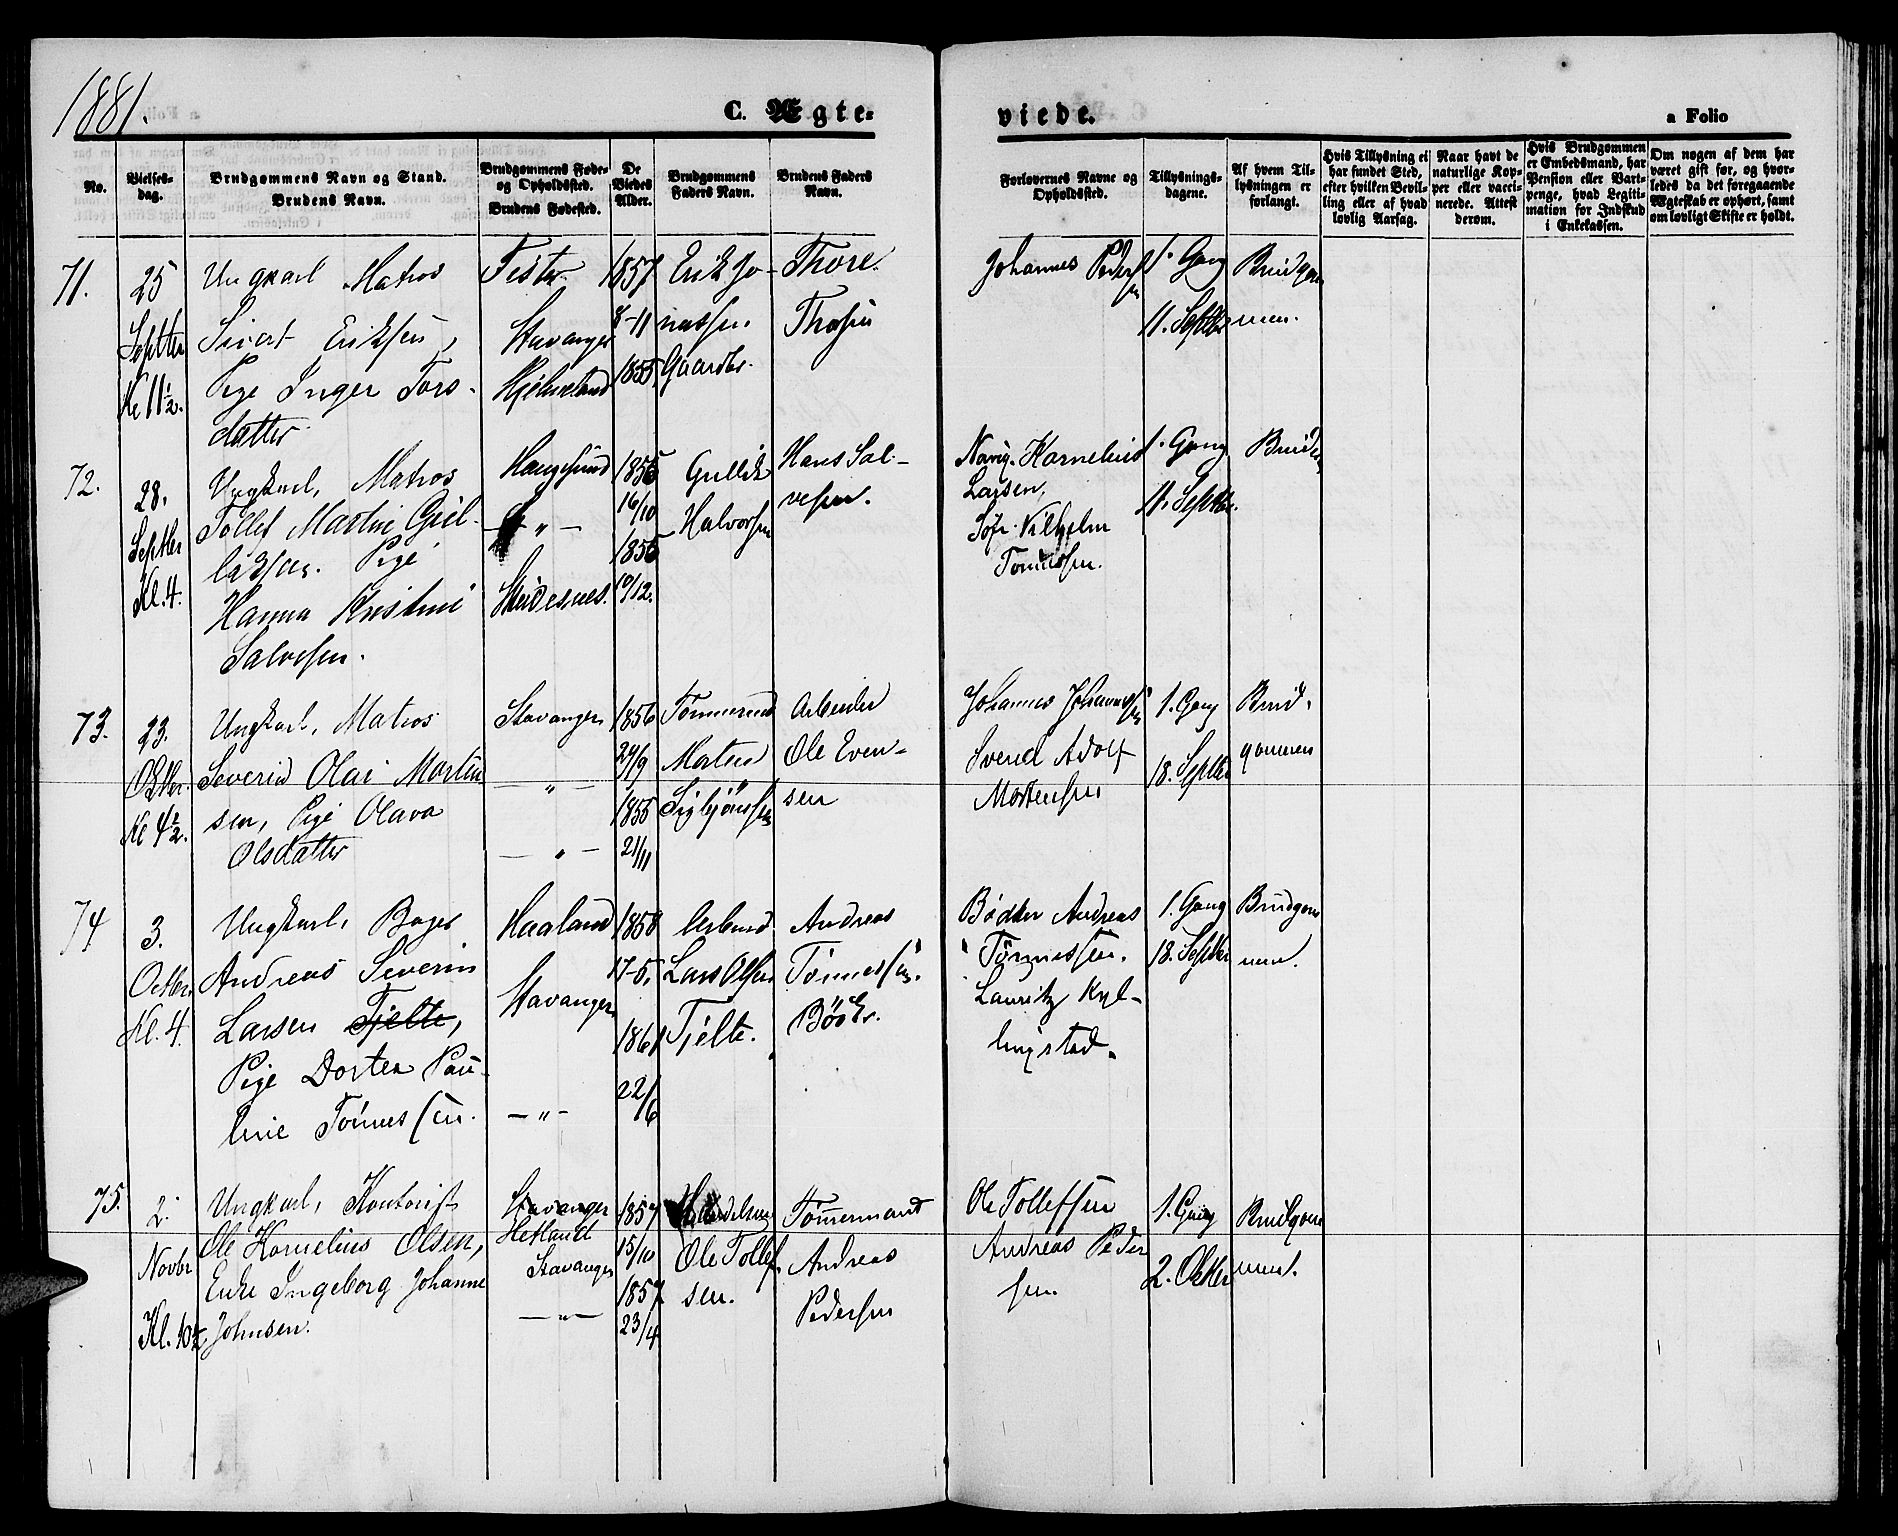 1881.
C. Ægte=
viede.
a Folio
No.
Vielses-
dag.
Brudgommens Navn og Stand.
Brudens Navn.
Brudgommens Føde-
og Opholdssted.
Brudens Fødested.
De
Viedes
Alder.
Brudgommens
Faders Navn.
Brudens Faders
Navn.
Forlovernes Navne og
Opholdssted.
Tillysnings-
dagene.
Af hvem Til-
lysningen er
forlangt.
Hvis Tillysning ei
har fundet Sted,
efter hvilken Bevil-
ling eller af hvad
lovlig Aarsag.
Naar havt de
naturlige Kop-
per eller vacci-
nerede. Attest
derom.
Hvis Brudgommen
er Embedsmand, har
Pension eller Vart-
penge, hvad Legiti-
mation for Indskud
i Enkekassen.
Om nogen af dem har
været gift før, og hvor-
ledes da det foregaaende
Ægteskab er ophørt, samt
om lovligt Skifte er holdt.
71.
25
Septbr
Kl 11½.
Ungkarl Matros
Sivert Eriksen,
Pige Inger Tors-
datter
Stavanger
Hjelmeland
1857
8-11
1855
Erik Jo-
nassen
Gaardbr.
Thore
Johannes Peders
en
1. Gang
11. Septbr
Brudgom
men.
72.
28.
Septbr
Kl. 4.
Ungkarl, Matros
Tollef Martin Gul-
liksen. Pige
Hanna Kristine
Salvesen.
Haugesund
— " —
Skudesnes.
1855
16/10
1855
10/12.
Gullik
Halvorsen
Hans Sal-
vesen.
Navig. Kornelius
Larsen,
Vilhelm
1. Gang
11. Septbr.
Brud
73.
23.
Octbr.
Kl 4½.
Ungkarl, Matros
Severin Olai Martin
sen, Pige Olava
Olsdatter
Stavanger
— " —
— " —
1856
24/9
1855
21/11
Tømmermd
Morten
Sigbjørnsen
Arbeider
Ole Even-
sen
Johannes Johannes
en
Svend Adolf
Mortensen
1. Gang
18. Septbr
Brud-
gommen
74
3.
Octbr.
Kl. 4.
Ungkarl, Bager
Andreas Severin
Larsen Tjelte,
Pige Dortea Pau-
line Tønnessen.
Haaland
Stavanger
— " —
1858
17-5.
1861
22/6
Arbeid.
Lars Olsen
Tjelte.
Andreas
Tønnessen.
Bødk.
Bødker Andreas
Tønnessen.
Lauritz Kyl-
lingstad.
1. Gang
18. Septbr
Brudgom
men.
75.
2.
Novbr
Kl. 10½
Ungkarl, Kontorist
Ole Kornelius Olsen,
Enke Ingeborg Johanne
Johnsen.
Stavanger
Hetland
Stavanger
— " —
1857
15/10
1857
23/4
Ole Tollef-
sen.
Tømmermand
Andreas
Pedersen
Ole Tollefsen
Andreas Peder
sen.
1. Gang
2. Octbr
Brudgom
men.